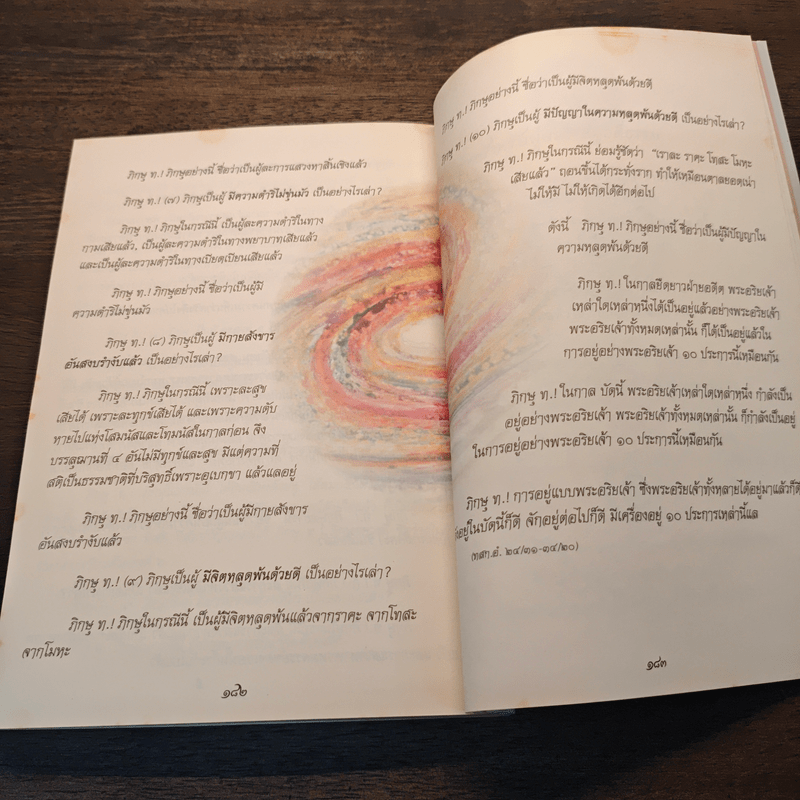 ภิกษุ ท.! ภิกษุอย่างนี้ ชื่อว่าเป็นผู้ละการแสวงหาสิ้นเชิงแล้ว
ภิกษุ ท.! (๗) ภิกษุเป็นผู้ มีความดำริไม่ขุ่นมัว เป็นอย่างไรเล่า?
ภิกษุ ท.! ภิกษุในกรณีนี้ เป็นผู้ละความดำริในทาง
กามเสียแล้ว, เป็นผู้ละความดำริในทางพยาบาทเสียแล้ว
และเป็นผู้ละความดำริในทางเบียดเบียนเสียแล้ว
ภิกษุ ท.! ภิกษุอย่างนี้ ชื่อว่าเป็นผู้มี
ความดำริไม่ขุ่นมัว
ภิกษุ ท.! (๘) ภิกษุเป็นผู้ มีกายสังขาร
อันสงบรำงับแล้ว เป็นอย่างไรเล่า?
ภิกษุ ท.! ภิกษุในกรณีนี้ เพราะละสุข
เสียได้ เพราะละทุกข์เสียได้ และเพราะความดับ
หายไปแห่งโสมนัสและโทมนัสในกาลก่อน จึง
บรรลุฌานที่ ๔ อันไม่มีทุกข์และสุข มีแต่ความที่
สติเป็นธรรมชาติที่บริสุทธิ์เพราะอุเบกขา แล้วแลอยู่
ภิกษุ ท.! ภิกษุอย่างนี้ ชื่อว่าเป็นผู้มีกายสังขาร
อันสงบรำงับแล้ว
ภิกษุ ท.! (๙) ภิกษุเป็นผู้ มีจิตหลุดพ้นด้วยดี เป็นอย่างไรเล่า?
ภิกษุ ท.! ภิกษุในกรณีนี้ เป็นผู้มีจิตหลุดพ้นแล้วจากราคะ จากโทสะ
จากโมหะ
๑๘๒
ภิกษุ ท.! ภิกษุอย่างนี้ ชื่อว่าเป็นผู้มีจิตหลุดพ้นด้วยดี
ภิกษุ ท.! (๑๐) ภิกษุเป็นผู้ มีปัญญาในความหลุดพ้นด้วยดี เป็นอย่างไรเล่า?
ภิกษุ ท.! ภิกษุในกรณีนี้ ย่อมรู้ชัดว่า "เราละ ราคะ โทสะ โมหะ
เสียแล้ว" ถอนขึ้นได้กระทั่งราก ทำให้เหมือนตาลยอดเน่า
ไม่ให้มี ไม่ให้เกิดได้อีกต่อไป
ดังนี้ ภิกษุ ท.! ภิกษุอย่างนี้ ชื่อว่าเป็นผู้มีปัญญาใน
ความหลุดพ้นด้วยดี
ภิกษุ ท.! ในกาลยืดยาวฝ่ายอดีต พระอริยเจ้า
เหล่าใดเหล่าหนึ่งได้เป็นอยู่แล้วอย่างพระอริยเจ้า
พระอริยเจ้าทั้งหมดเหล่านั้น ก็ได้เป็นอยู่แล้วใน
การอยู่อย่างพระอริยเจ้า ๑๐ ประการนี้เหมือนกัน
ภิกษุ ท.! ในกาล บัดนี้ พระอริยเจ้าเหล่าใดเหล่าหนึ่ง กำลังเป็น
อยู่อย่างพระอริยเจ้า พระอริยเจ้าทั้งหมดเหล่านั้น ก็กำลังเป็นอยู่
ในการอยู่อย่างพระอริยเจ้า ๑๐ ประการนี้เหมือนกัน
ภิกษุ ท.! การอยู่แบบพระอริยเจ้า ซึ่งพระอริยเจ้าทั้งหลายได้อยู่มาแล้วก็ดี
อยู่ในบัดนี้ก็ดี จักอยู่ต่อไปก็ดี มีเครื่องอยู่ ๑๐ ประการเหล่านี้แล
(ทสก.อํ. ๒๔/๓๑-๓๔/๒๐)
๑๘๓